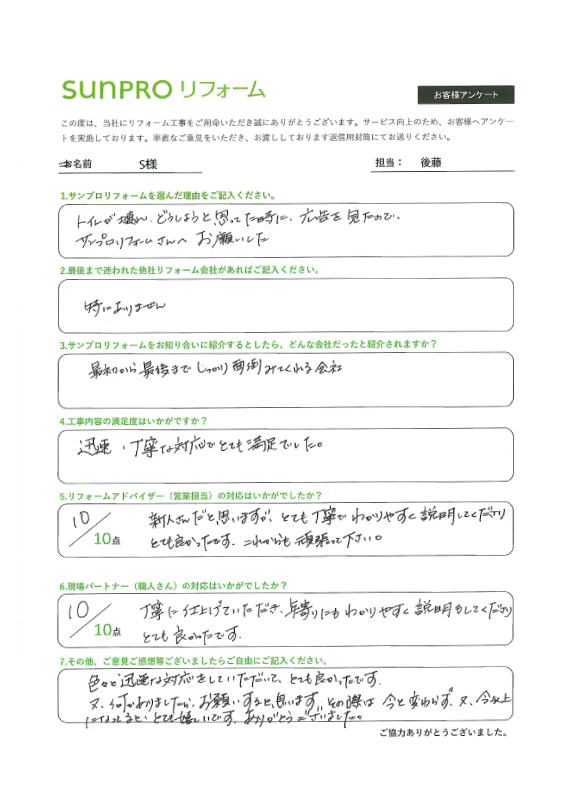 SUNPRO リフォーム
お客様アンケート
この度は、当社にリフォーム工事をご用命いただき誠にありがとうございます。サービス向上のため、お客様へアンケー
トを実施しております。率直なご意見をいただき、お渡ししております返信用封筒にてお送りください。
お名前 S様 担当： 後藤
1.サンプロリフォームを選んだ理由をご記入ください。
トイレが壊れ、どうしようと思ってた時に、広告を見たので、
サンプロリフォームさんへ お願いした
2.最後まで迷われた他社リフォーム会社があればご記入ください。
特にありません
3.サンプロリフォームをお知り合いに紹介するとしたら、どんな会社だったと紹介されますか？
最初から最後までしっかり面倒みてくれる会社
4.工事内容の満足度はいかがですか？
迅速、丁寧な対応でとても満足でした。
5.リフォームアドバイザー（営業担当）の対応はいかがでしたか？
10／10点
新人さんだと思いますが、とても丁寧でわかりやすく説明してくださり
とても良かったです。これからも頑張って下さい。
6.現場パートナー（職人さん）の対応はいかがでしたか？
10／10点
丁寧に仕上げていただき、年寄りにもわかりやすく説明もしてくださり
とても良かったです。
7.その他、ご意見ご感想等ございましたらご自由にご記入ください。
色々と迅速な対応をしていただいて、とても良かったです。
又、何かありましたら、お願いすると思います。その際は 今と変わらず、又、今以上
になってるととても嬉しいです。ありがとうございました。
ご協力ありがとうございました。